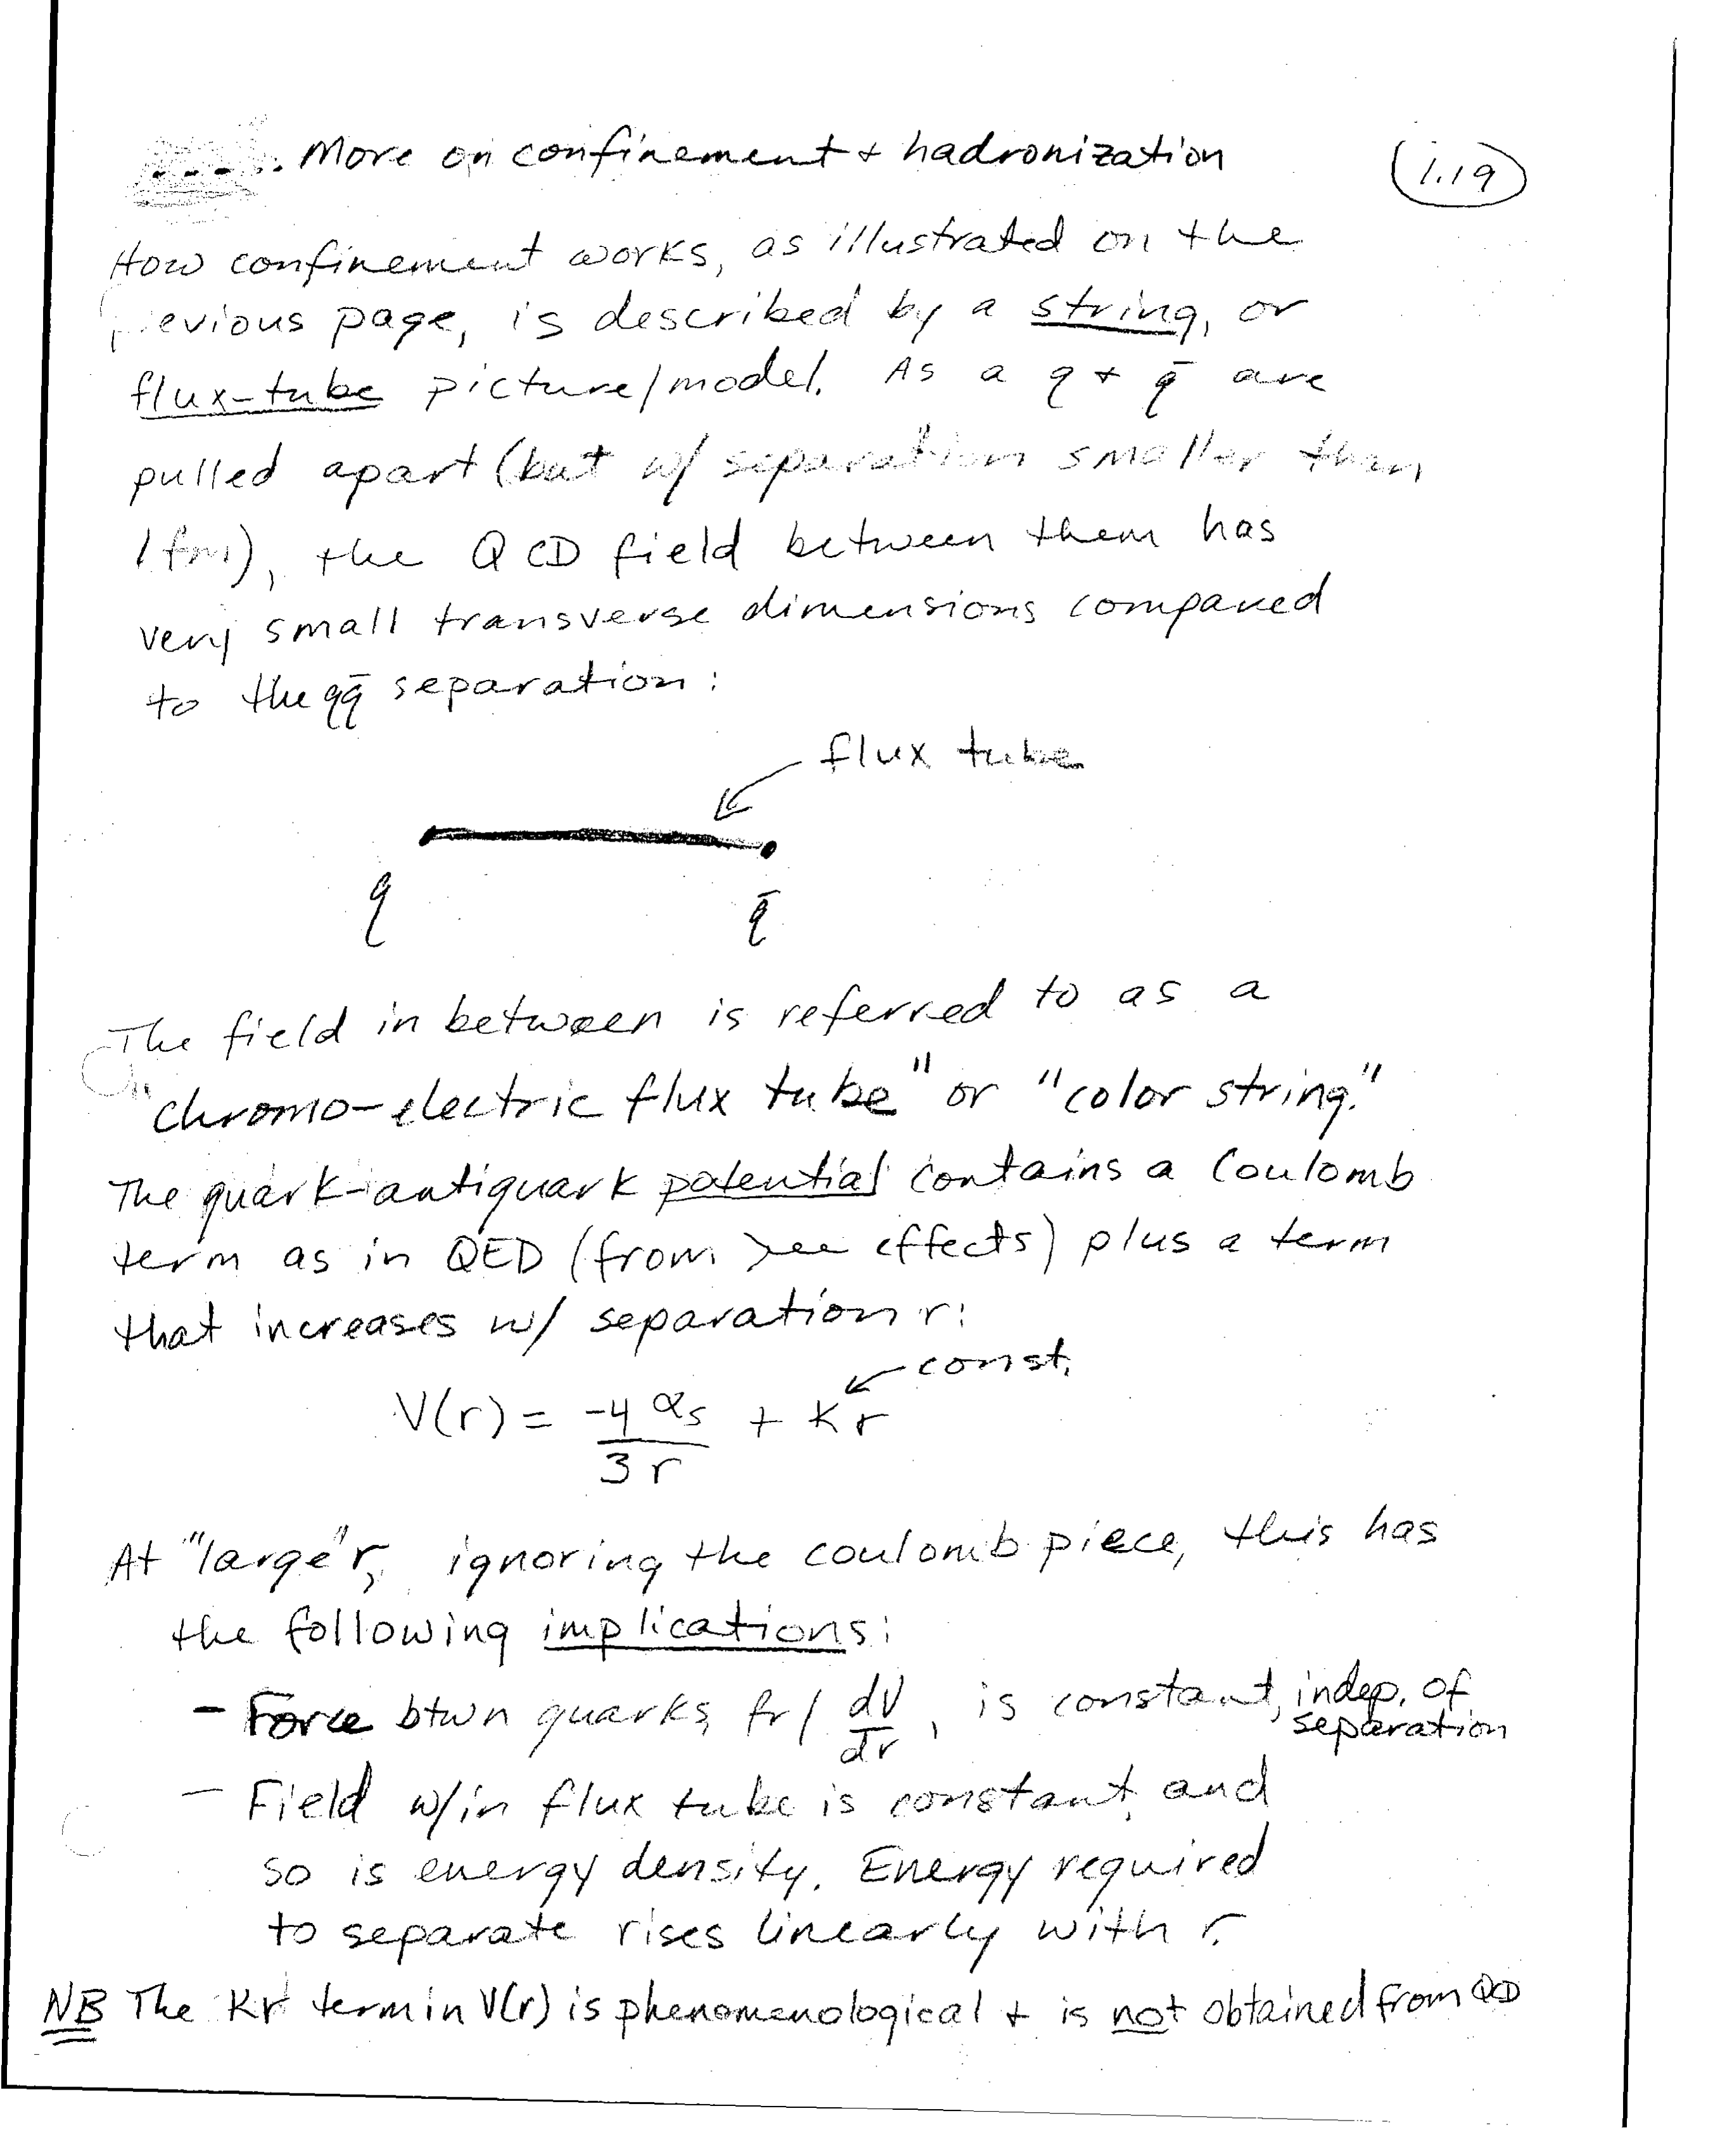 ..... More on confinement + hadronization
1.19
How confinement works, as illustrated on the
previous page, is described by a string, or
flux-tube picture/model. As a q + q̄ are
pulled apart (but w/ separation smaller than
1 fm), the QCD field between them has
very small transverse dimensions compared
to the qq̄ separation:
flux tube
q q̄
The field in between is referred to as a
"chromo-electric flux tube" or "color string."
The quark-antiquark potential contains a Coulomb
term as in QED (from effects) plus a term
that increases w/ separation r:
const.
V(r) = -4 αs / 3 r + K r
At "large" r, ignoring the coulomb piece, this has
the following implications:
- Force btwn quarks, fr/ dV/dr, is constant, indep. of
separation
- Field w/in flux tube is constant, and
so is energy density. Energy required
to separate rises linearly with r.
NB The Kr term in V(r) is phenomenological + is not obtained from QCD